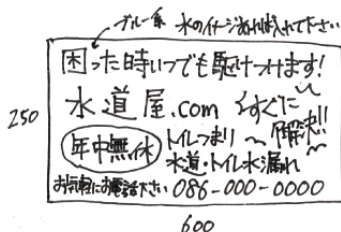 ブルー系 水のイメージあれば入れて下さい
困った時いつでも駆けつけます!
水道屋.com すぐに解決!!
年中無休 トイレつまり〜
水道・トイレ水漏れ
お気軽にお電話下さい 086-000-0000
250
600